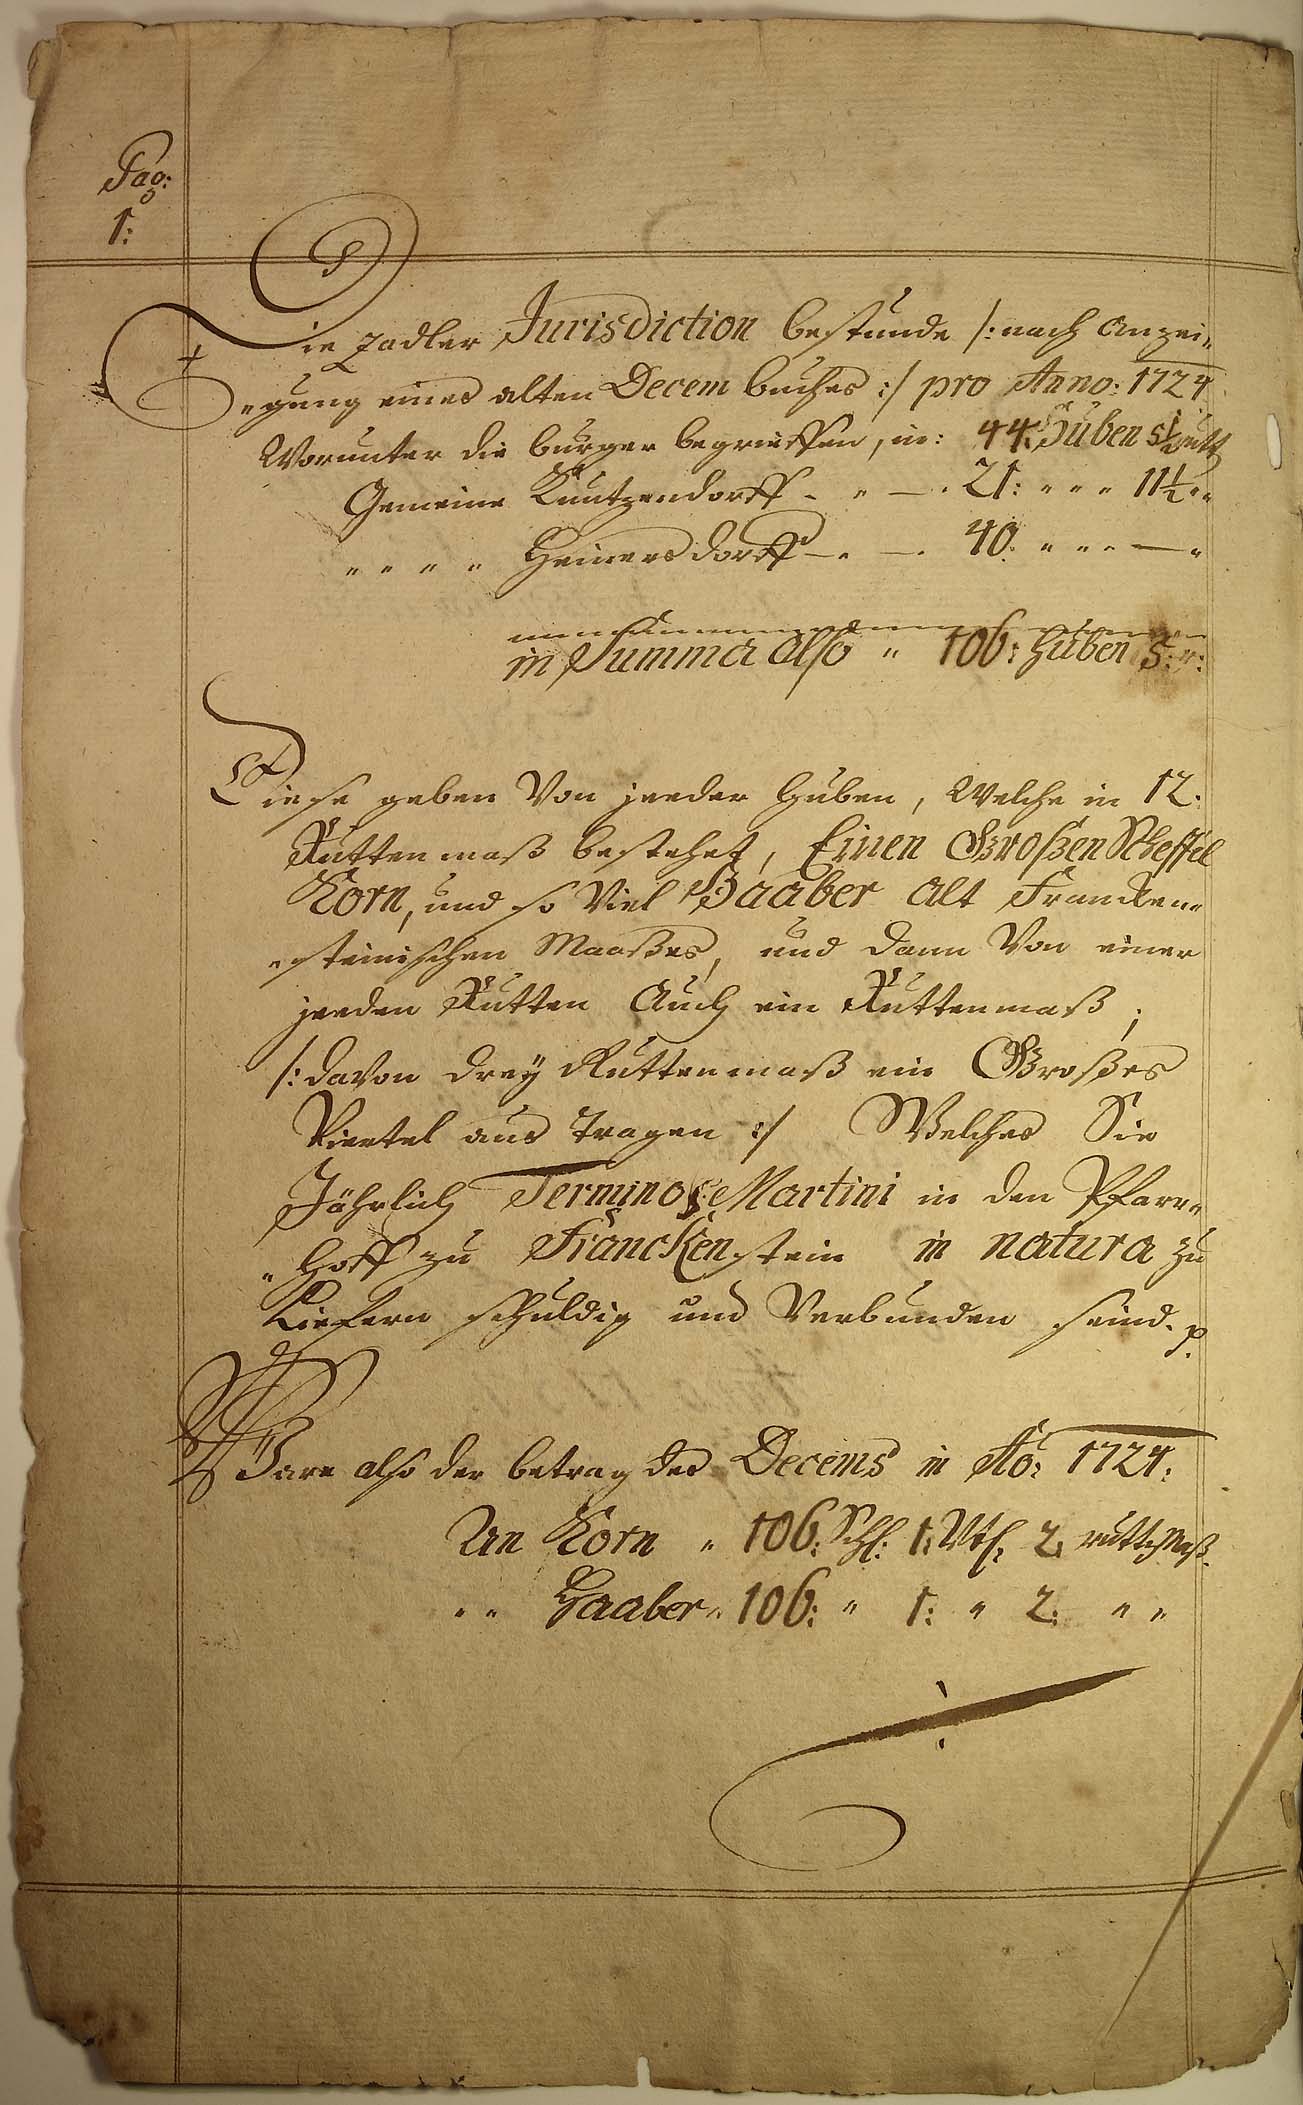 Pag:
1:
Die Zadler Jurisdiction bestunde /: nach Anzei„
„gung eines alten Decem buches :/ pro Anno: 1724
Worunter die burger begrieffen, in: 44: Huben 5½ rutt
Gemeine Kuntzendorff - „ — . 21: „ „ „ 11½ „ „
„ „ „ „ Heinersdorff — . — . 40: „ „ „ — „
in Summa also „ 106: Huben 5: „:
Diese geben Von jeeder Huben, Welche in 12.
Rutten maß bestehet, Einen Großen Scheffel
Korn, und so Viel Haaber alt Francken„
„steinischen Maaßes, und dann Von einer
jeeden Rutten Auch ein Ruttenmaß,
/: davon drey Ruttenmaß ein Großes
Viertel aus tragen :/ Welches Sie
Jährlich Termino S: Martini in den Pfarr„
„Hoff zu Franckenstein in natura zu
Liefern schuldig und Verbunden seind. p.
Ware also der betrag des Decems in Ao: 1724:
An Korn „ 106: Schfl: 1: Vtl: 2: rutt Maß.
„ „ Haaber „ 106: „ 1: „ 2: „ „